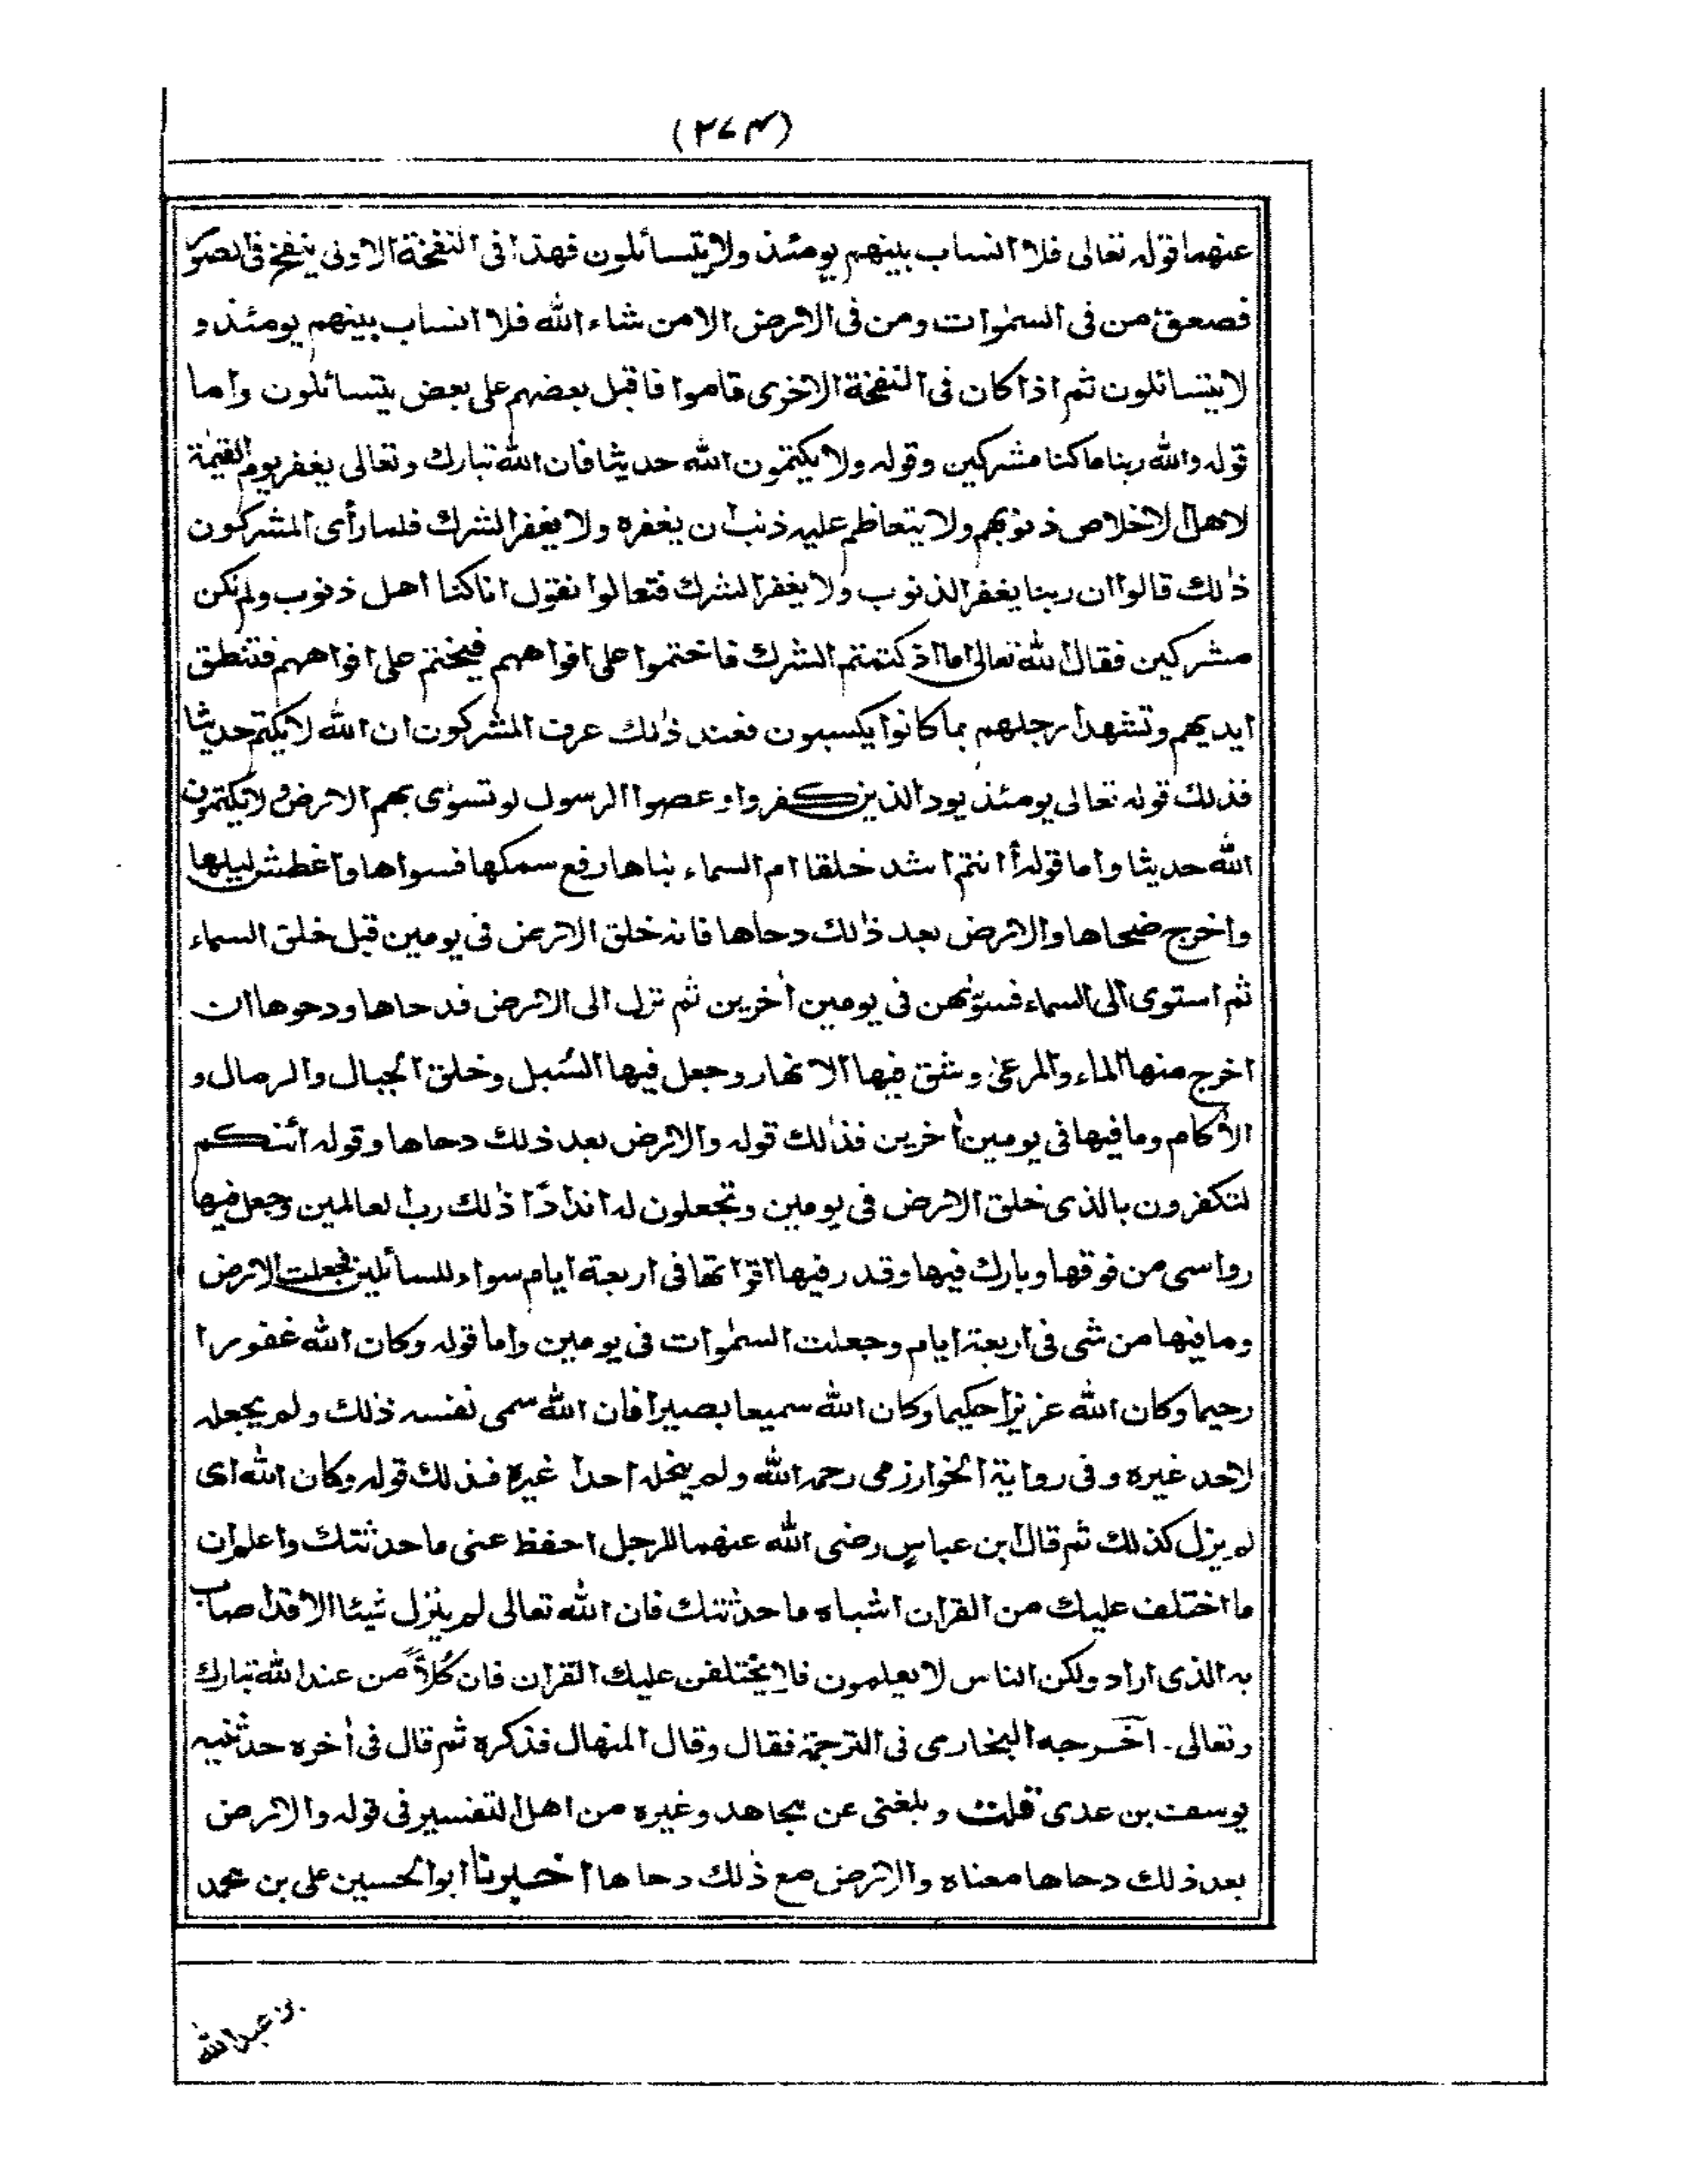 (٢٧٣)
عنهما قوله تعالى فلا انساب بينهم يومئذ ولا يتسائلون فهذا فى النفخة الاولى ينفخ فى الصور
فصعق من فى السمٰوات ومن فى الارض الا من شاء الله فلا انساب بينهم يومئذ و
لا يتسائلون ثم اذا كان فى النفخة الاخرى قاموا فاقبل بعضهم على بعض يتسائلون واما
قوله والله ربنا ما كنا مشركين وقوله ولا يكتمون الله حديثا فان الله تبارك وتعالى يغفر يوم القيٰمة
لاهل الاخلاص ذنوبهم ولا يتعاظم عليه ذنب ان يغفره ولا يغفر الشرك فلما رأى المشركون
ذٰلك قالوا ان ربنا يغفر الذنوب ولا يغفر الشرك فتعالوا نقول انا كنا اهل ذنوب ولم نكن
مشركين فقال الله تعالى اما اذ كتمتم الشرك فاختموا على افواههم فيختم على افواههم فتنطق
ايديهم وتشهد ارجلهم بما كانوا يكسبون فعند ذٰلك عرف المشركون ان الله لا يكتم حديثا
فذلك قوله تعالى يومئذ يود الذين كفروا وعصوا الرسول لو تسوّى بهم الارض ولا يكتمون
الله حديثا واما قوله أ انتم اشد خلقا ام السماء بناها رفع سمكها فسواها واغطش ليلها
واخرج ضحاها والارض بعد ذٰلك دحاها فانه خلق الارض فى يومين قبل خلق السماء
ثم استوى الى السماء فسوّٰىهن فى يومين اٰخرين ثم نزل الى الارض فدحاها ودحوها ان
اخرج منها الماء والمرعىٰ وشق فيها الانهار وجعل فيها السُبل وخلق الجبال والرمال و
الأكام وما فيها فى يومين أخرين فذٰلك قوله والارض بعد ذلك دحاها وقوله ائنكم
لتكفرون بالذى خلق الارض فى يومين وتجعلون له اندادًا ذٰلك رب العالمين وجعل فيها
رواسى من فوقها وبارك فيها وقدر فيها اقواتها فى اربعة ايام سواء للسائلين فجعلت الارض
وما فيها من شى فى اربعة ايام وجعلت السمٰوات فى يومين واما قوله وكان الله غفورا
رحيما وكان الله عزيزا حكيما وكان الله سميعا بصيرا فان الله سمى نفسه ذلك ولم يجعله
لاحد غيره وفى رواية الخوارزمى رحمه الله ولم ينحله احدا غيره فذلك قوله وكان الله اى
لم يزل كذلك ثم قال ابن عباس رضى الله عنهما للرجل احفظ عنى ما حدثتك واعلم ان
ما اختلف عليك من القران اشباه ما حدثتك فان الله تعالى لم ينزل شيئا الا قد اصاب
به الذى اراد ولكن الناس لا يعلمون فلا يختلفن عليك القران فان كُلاًّ من عند الله تبارك
وتعالى. اخرجه البخارى فى الترجمة فقال وقال المنهال فذكره ثم قال فى أخره حدثنيه
يوسف بن عدى قلت وبلغنى عن مجاهد وغيره من اهل التفسير فى قوله والارض
بعد ذلك دحاها معناه والارض مع ذٰلك دحاها اخبرنا ابو الحسين على بن محمد
بن عبد الله